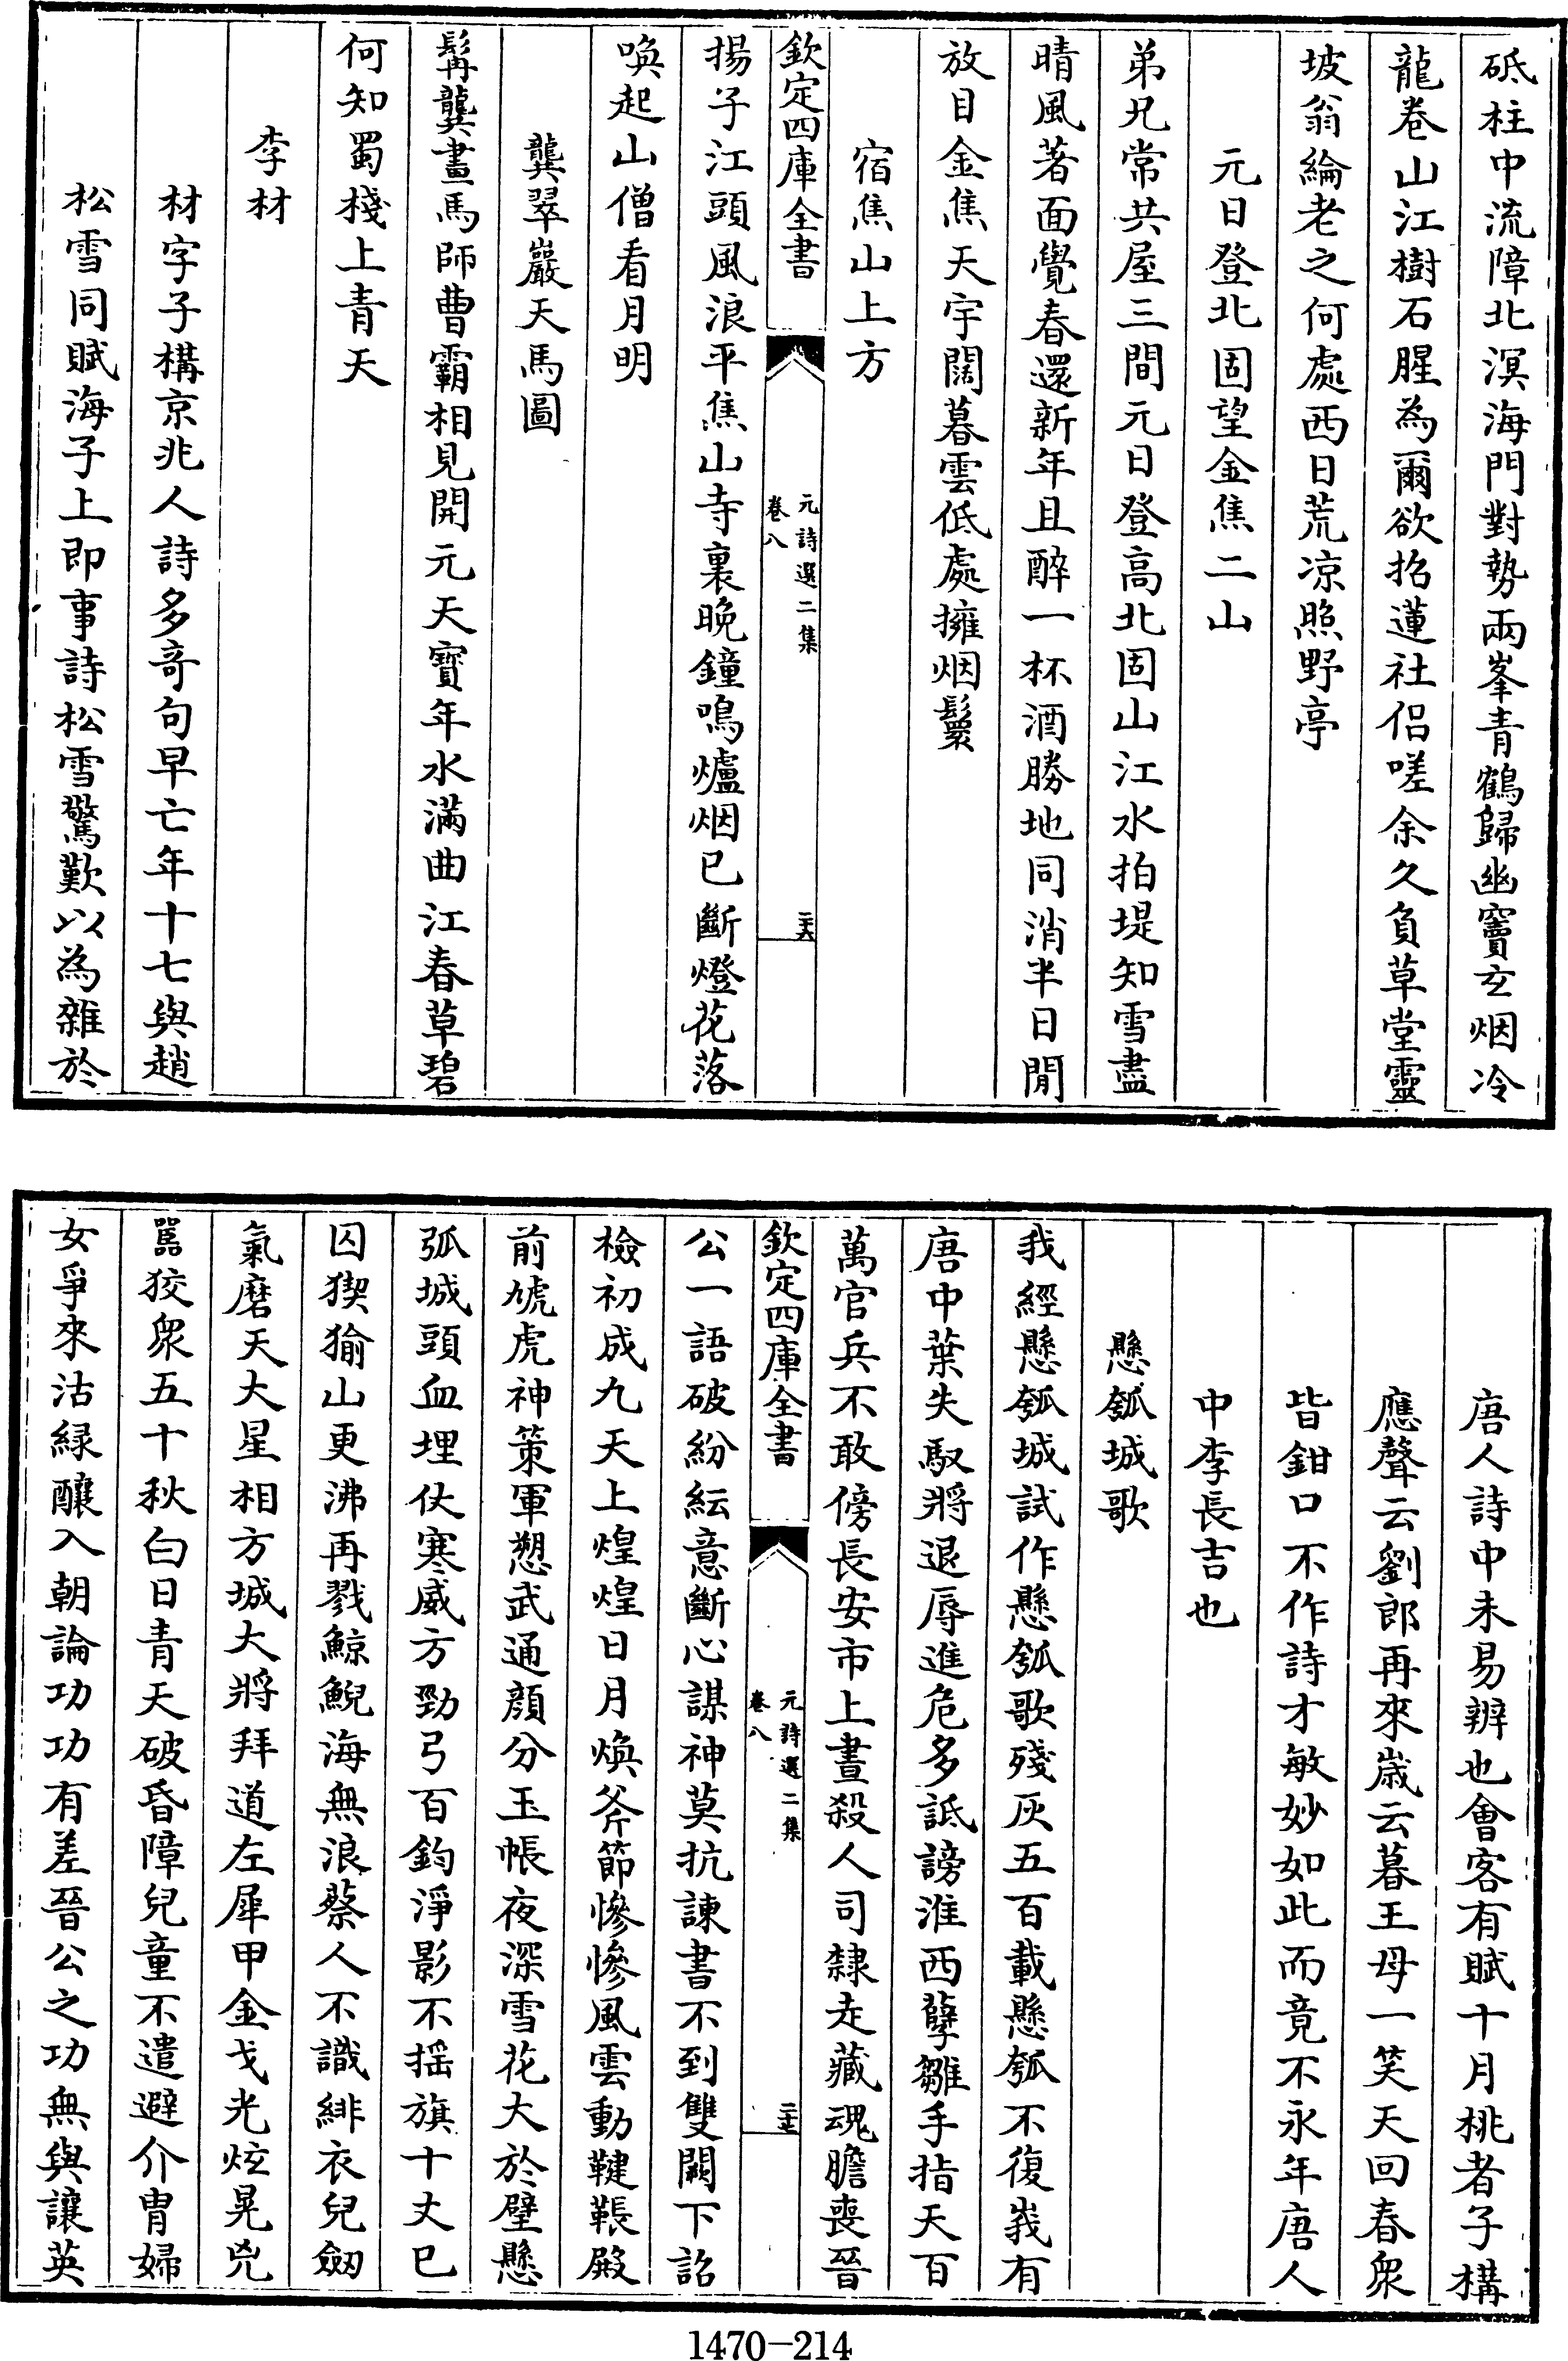 砥柱中流障北溟海門對勢兩峯青鶴歸幽竇玄烟冷
龍卷山江樹石腥為爾欲招蓮社侶嗟余久負草堂靈
坡翁綸老之何處西日荒凉照野亭
元日登北固望金焦二山
弟兄常共屋三間元日登高北固山江水拍堤知雪盡
晴風著面覺春還新年且醉一杯酒勝地同消半日閒
放目金焦天宇闊暮雲低處擁烟鬟
宿焦山上方
欽定四庫全書
元詩選二集
卷八
二十六
揚子江頭風浪平焦山寺裏晚鐘鳴爐烟已斷燈花落
喚起山僧看月明
龔翠巖天馬圖
髯龔畫馬師曹霸相見開元天寶年水滿曲江春草碧
何知蜀棧上青天
李材
材字子構京兆人詩多奇句早亡年十七與趙
松雪同賦海子上即事詩松雪驚歎以為雜於
唐人詩中未易辨也會客有賦十月桃者子構
應聲云劉郎再來嵗云暮王母一笑天回春衆
皆鉗口不作詩才敏妙如此而竟不永年唐人
中李長吉也
懸瓠城歌
我經懸瓠城試作懸瓠歌殘灰五百載懸瓠不復峩有
唐中葉失馭將退辱進危多詆謗淮西孽雛手指天百
萬官兵不敢傍長安市上晝殺人司隸走藏魂膽喪晉
欽定四庫全書
元詩選二集
卷八
二十七
公一語破紛紜意斷心謀神莫抗諫書不到雙闕下詔
檢初成九天上煌煌日月煥斧節慘慘風雲動鞬韔殿
前虓虎神策軍愬武通顔分玉帳夜深雪花大於壁懸
弧城頭血埋仗寒威方勁弓百鈞淨影不揺旗十丈已
囚猰㺄山更沸再戮鯨鯢海無浪蔡人不識緋衣兒劒
氣磨天大星相方城大將拜道左犀甲金戈光炫晃兇
嚚狡衆五十秋白日青天破昏障兒童不遣避介胄婦
女爭來沽緑釀入朝論功功有差晉公之功無與讓英
1470-214